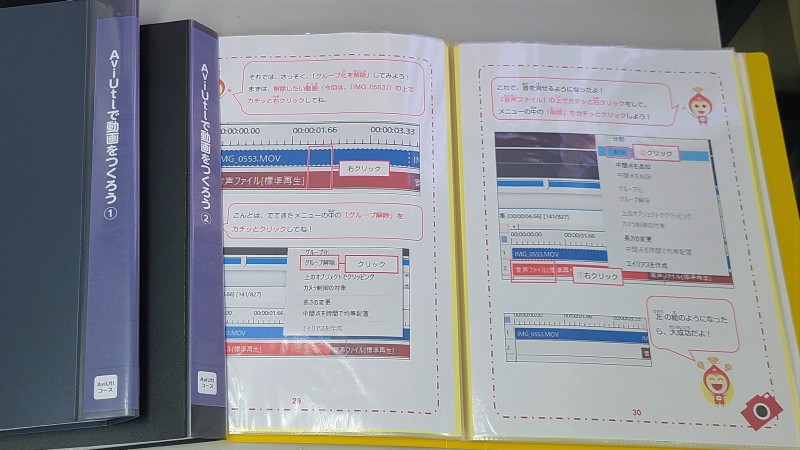 AviUtlで動画をつくろう①
AviUtl
コース
AviUtlで動画をつくろう②
AviUtl
コース
それでは、さっそく、「グループ化を解除」してみよう!
まずは、解除したい動画(今回は、「IMG_0553」)の上で
カチッと右クリックしてね。
00:00:00.00 00:00:01.66 00:00:03.33
IMG_0553.MOV
音声ファイル[標準再生]
右クリック
こんどは、でてきたメニューの中の「グループ解除」を
カチッとクリックしてね!
グループ化
グループ解除
クリック
上のオブジェクトでクリッピング
カメラ制御の対象
長さの変更
中間点を時間で均等配置
エイリアスを作成
04.66] [141/827]
00:00:01.66
0553.MOV
音声ファイル[標準再生]
29
これで、音を消せるようになったよ!
「音声ファイル」の上でカチッと右クリックをして、
メニューの中の「削除」をカチッとクリックしよう!
分割
削除
②クリック
中間点を追加
中間点を削除
グループ化
グループ解除
上のオブジェクトでクリッピング
カメラ制御の対象
長さの変更
中間点を時間で均等配置
エイリアスを作成
集 [00:00:04.66] [141/827]
00:00:00.00 00:00:01.66
1 IMG_0553.MOV
2 音声ファイル[標準再
①右クリック
音声ファイル[標準再生]
左の絵のようになった
ら、大成功だよ!
00:00:00.00 00:00:01.66 00:00:03.33 00:00:05.00
1 IMG_0553.MOV
2
30